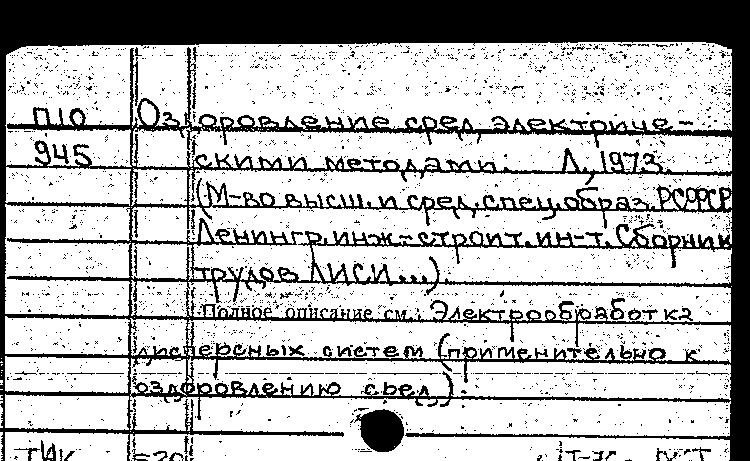 П10 Оздоровление сред электриче-
945 скими методами. Л., 1973.
(М-во высш. и сред. спец. образ. РСФСР
Ленингр. инж.-строит. ин-т. Сборник
трудов ЛИСИ...).
Полное описание см.: Электрообработка
дисперсных систем (применительно к
оздоровлению сред).